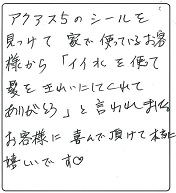 アクアス5のシールを
見つけて 家で使っているお客
様から「イイ水を使って
髪をきれいにしてくれて
ありがとう」と言われました
お客様に喜んで頂けて本当に
嬉しいです♡